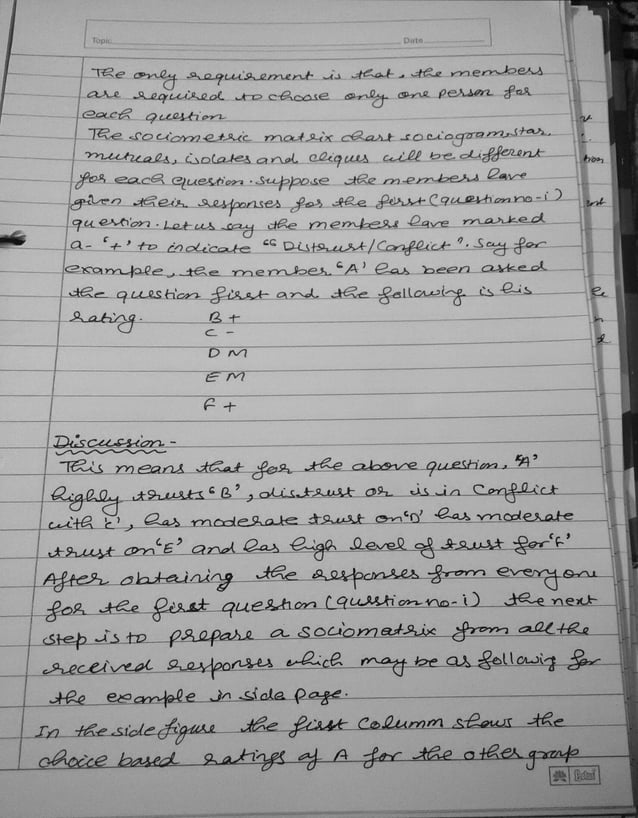 Topic Date
The only requirement is that, the members
are required to choose only one person for
each question
The sociometric matrix chart sociogram, star,
mutuals, isolates and cliques will be different
for each question. Suppose the members have
given their responses for the first (question no-i)
question. Let us say the members have marked
a- '+' to indicate "Distrust/Conflict". Say for
example, the member 'A' has been asked
the question first and the following is his
rating. B +
C -
D M
E M
F +
Discussion -
This means that for the above question, 'A'
highly trusts 'B', distrust or is in Conflict
with 'c', has moderate trust on 'D' has moderate
trust on 'E' and has high level of trust for 'F'
After obtaining the responses from everyone
for the first question (question no-i) the next
step is to prepare a sociomatrix from all the
received responses which may be as followig for
the example in side page.
In the side figure the first Columm shows the
choice based ratings of A for the other group